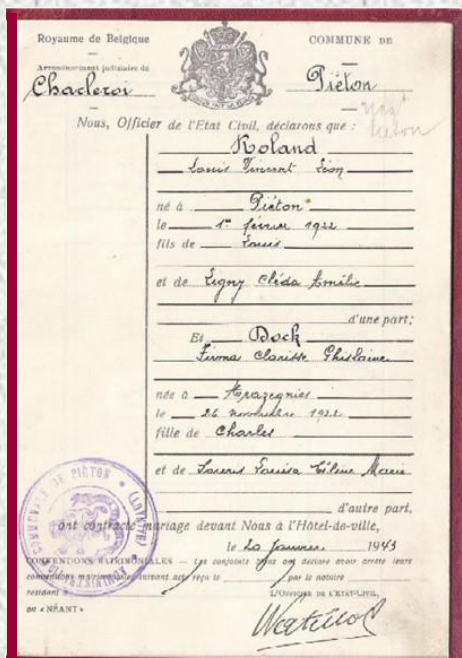 Royaume de Belgique
COMMUNE DE
Arrondissement judiciaire de
Charleroi
Piéton
Nous, Officier de l'Etat Civil, déclarons que :
Roland
Louis Vincent Léon
né à Piéton
le 1er février 1922
fils de Louis
et de Ligny Cléda Emélie
d'une part;
Et Dock
Firma Clarisse Ghislaine
née à Trazegnies
le 26 novembre 1922
fille de Charles
et de Louisa Marie
d'autre part,
ont contracté mariage devant Nous à l'Hôtel-de-ville,
le 20 janvier 1943
CONVENTIONS MATRIMONIALES — Les conjoints Nous ont déclaré avoir arrêté leurs
conventions matrimoniales suivant acte reçu le par le notaire
résidant à
L'OFFICIER DE L'ETAT-CIVIL,
ou « NÉANT »
COMMUNALE DE PIÉTON